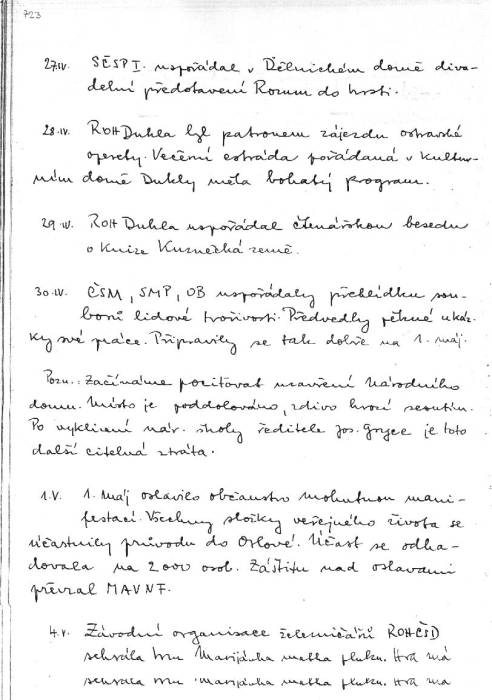 723
27.IV. SČSP I. uspořádal v Dělnickém domě diva-
delní představení Rozum do hrsti.
28.IV. ROH Dukla byl patronem zájezdu ostravské
operety. Večerní estráda pořádaná v Kultur-
ním domě Dukly měla bohatý program.
29.IV. ROH Dukla uspořádal čtenářskou besedu
o knize Kuzněcká země.
30.IV. ČSM, SMP, OB uspořádaly přehlídku sou-
borů lidové tvořivosti. Předvedly pěkné ukáz-
ky své práce. Připravily se tak dobře na 1. máj.
Pozn.: Začínáme pociťovat uzavření Národního
domu. Místo je poddolováno, zdivo hrozí sesutím.
Po vyklizení nár. školy ředitele Jos. je toto
další citelná ztráta.
1.V. 1. máj oslavilo občanstvo mohutnou mani-
festací. Všechny složky veřejného života se
účastnily průvodu do Orlové. Účast se odha-
dovala na 2000 osob. Záštitu nad oslavami
převzal MAVNF.
4.V. Závodní organisace železničářů ROH-ČSD
sehrála hru Marijácha matka pluku. Hra má
sehrála hru Marijácha matka pluku. Hra má